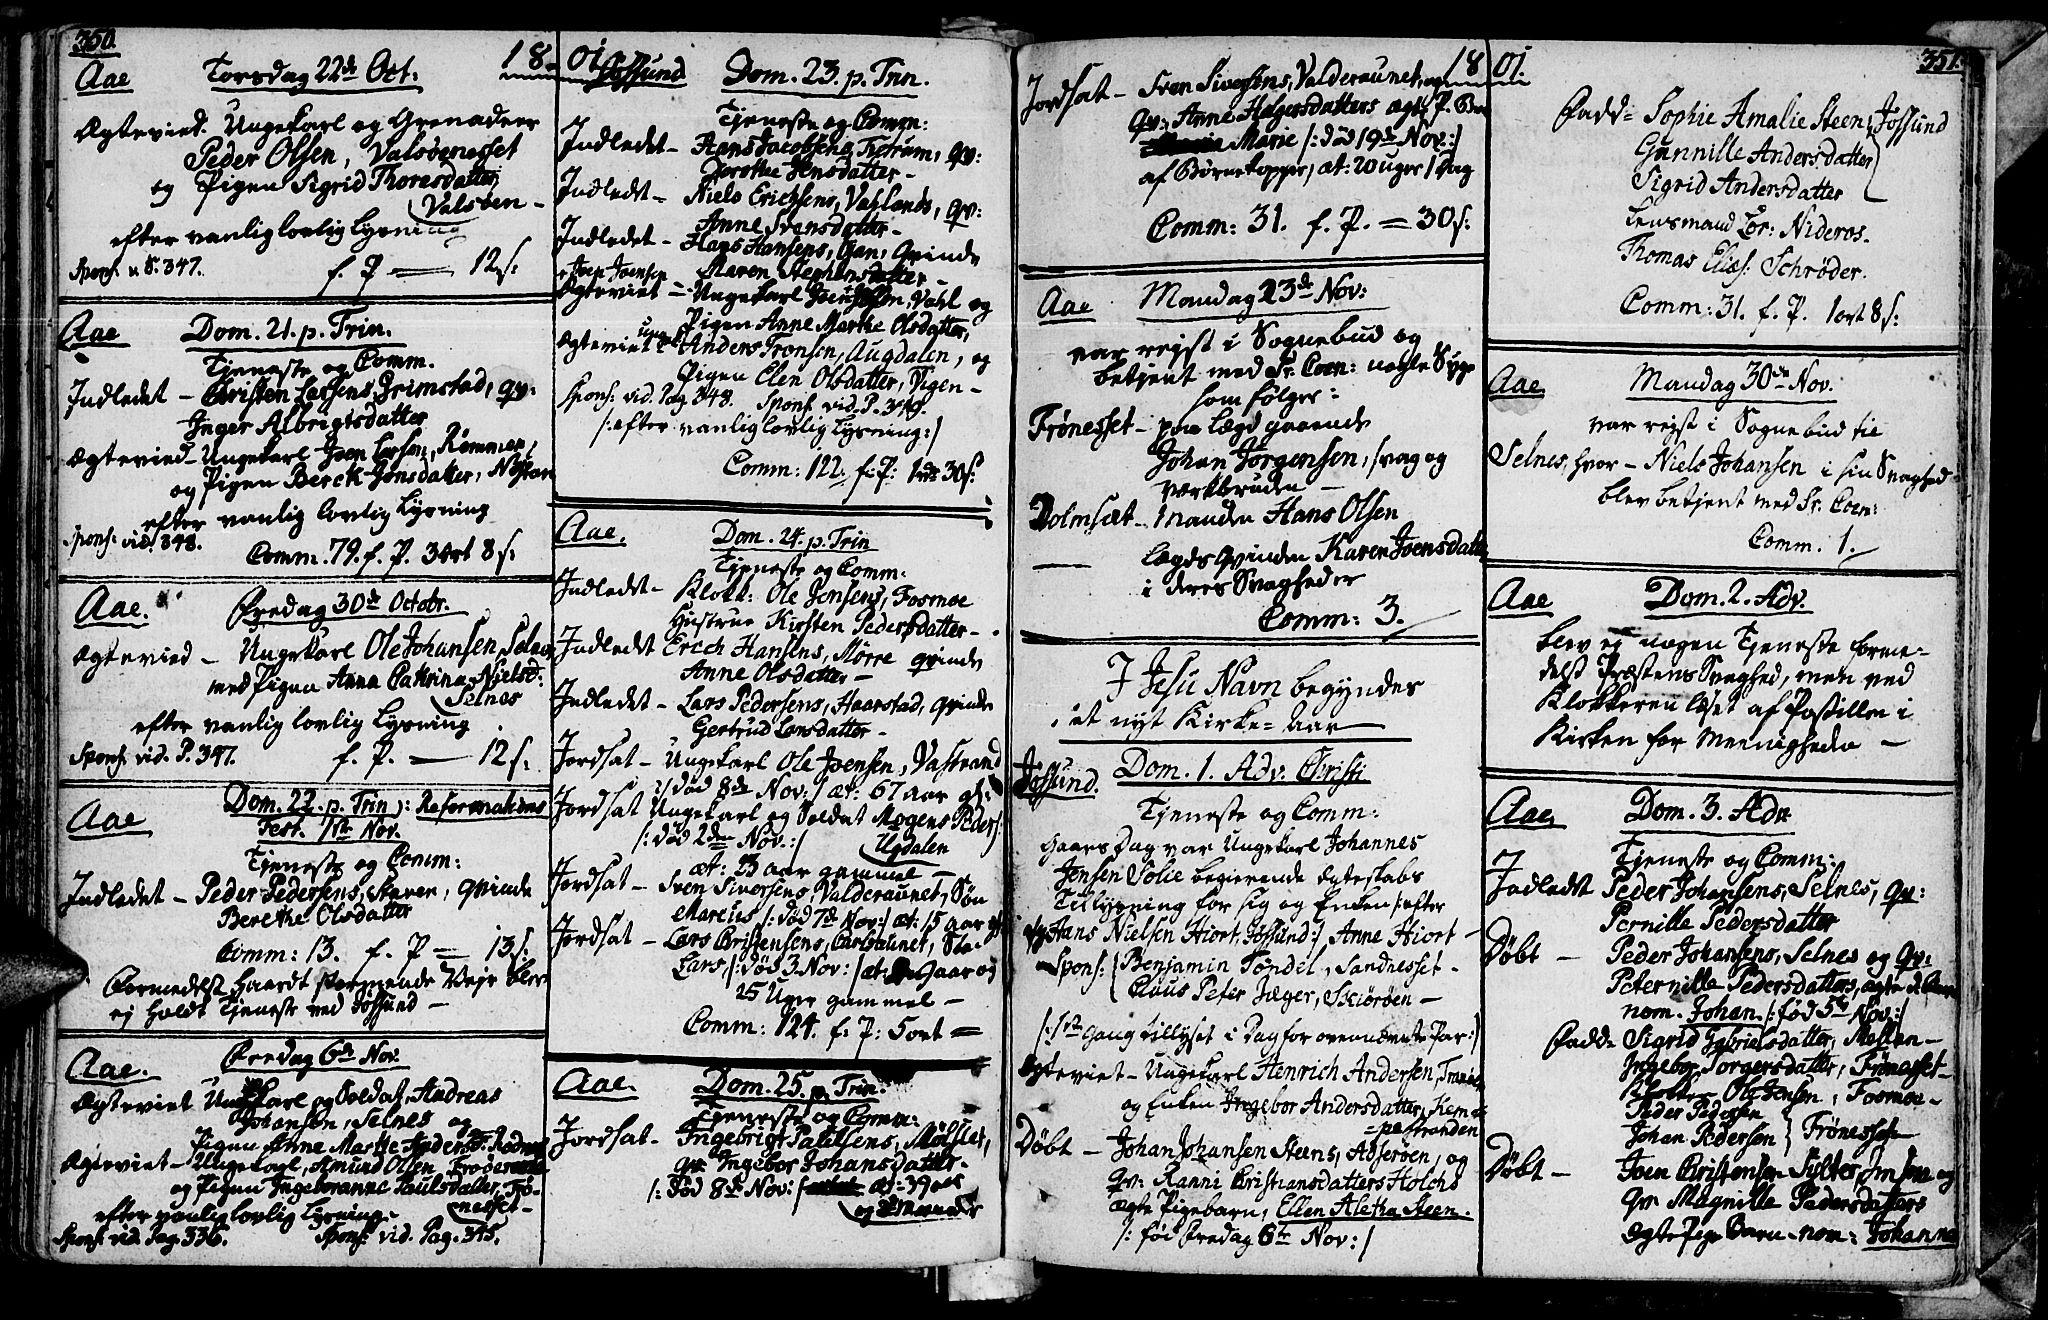 350.
1801.
Aae Torsdag 22de Oct:
Ægtevied. Ungekarl og Grenadeer
Peder Olsen, Valsøenesset
og Pigen Sigrid Thoresdatter
Valsøen -
efter vanlig lovlig Lysning
Spons: v. P. 347. f. P — 12 s:
Aae Dom. 21. p. Trin.
Tjeneste og Comm.
Indledet - Christen Larsens, Grimstad, qv:
Inger Albrigtsdatter
Ægteviet - Ungekarl Joen Larsen, Rømmen,
og Pigen Berck Jonsdatter,
efter vanlig lovlig Lysning
Spons: vid. 348.
Comm. 79. f. P. 3 ort 8 s:
Aae. Fredag 30de Octobr.
Ægteviet - Ungekarl Ole Johansen, Selnes
med Pigen Anna Cathrina Nielsd:
Selnes
efter vanlig lovlig Lysning
Spons: vid. P. 347. f. P. — 12 s.
Aae Dom. 22. p. Trin: Reformations
Fest. 1ste Nov.
Tjeneste og Comm:
Indledet - Peder Pedersens, qvinde
Berethe Olsdatter
Comm: 13. f. P = 13 s.
Formedelst haardt stormende Vejr blev
ej holdt Tjeneste ved Jøssund -
Aae. Fredag 6te Nov.
Ægteviet Ungekarl og Soldat, Andreas
Johansen, Selnes og
Pigen Anne Marthe
Ægteviet - Ungekarl, Amund Olsen,
og Pigen Ingeboranne Paulsdatter, Frø-
nesset -
efter vanlig lovlig Lysning -
Spons: vid. Pag. 336. Spons: vid. Pag. 345.
Jøssund Dom. 23. p. Trin.
Tjeneste og Comm:
Indledet - Hans Jacobsens, qv:
Dorthe Jensdatter -
Indledet - Niels Erichsens, Vahlands, qv:
Anne Svensdatter -
Indledet - Hans Hansens, Gan, Qvinde
Maren Stephensdatter -
Ægteviet - Ungekarl Joen Joensen, Vahl og
Pigen Anne Marthe Olsdatter,
Ægteviet Ungekarl Anders Tronsen, Augdalen, og
Pigen Elen Olsdatter, Vigen -
Spons: vid. Pag 348. Spons: vid. P. 349.
/: efter vanlig lovlig Lysning :/
Comm: 122. f. P: 1 rdr 30 s.
Aae. Dom. 24. p. Trin
Tjeneste og Comm.
Indledet - Klokk: Ole Jensens, Fosmoe
Hustrue Kirsten Pedersdatter -
Indledet Erich Hansens, Mørre qvinde
Anne Olsdatter -
Indledet - Lars Pedersens, Haarstad, Qvinde
Gertrud Larsdatter -
Jordsat - Ungekarl Ole Joensen, Vastrand
/: død 8de Nov: / æt: 67 aar gl:
Jordsat Ungekarl og Soldat Mogens Peders:
/: død 2den Nov. :/ Ugdalen
æt: 23 aar gammel -
Jordsat - Sven Siversens, Valderaunet, Søn
Marcus /: død 7de Nov:/ æt: 15 aar
Jordsat - Lars Christensens, Carlsaunet, Søn
Lars, /: død 3. Nov: / æt: 9 aar og
25 Uger gammel -
Comm: 124. f. P: 5 ort =
Aae. Dom. 25. p. Trin.
Tjeneste og Comm:
Jordsat - Ingebrigt Paulsens, Mølslet,
qv Ingebor Johansdatter -
/: død 8de Nov: / æt: 39 aar
og 2 Maaneder
1801. 351.
Jordsat - Sven Sivertsens, Valderaunet, og
qv: Anne Holgersdatters ægte P. Barn
Marie /: død 19de Nov: /
af Børnekopper, æt: 20 uger 1 Dag
Comm: 31. f. P. = 30 s:
Aae Mandag 23de Nov:
var rejst i Sognebud og
betjent med Sr. Coen: nogle Syge
som følger:
Frønesset - paa Lægd gaaende
Johan Jørgensen, svag og
værkbruden -
Dolmsæt - Manden Hans Olsen
— Lægds Qvinden Karen Joensdatter
i deres Svagheder
Comm: 3.
I Jesu Navn begyndes
et nyt Kirke-Aar
Jøssund. Dom. 1. Adv. Christi
Tjeneste og Comm:
Paa Dag var Ungekarl Johannes
Jensen Solie begierende Ægteskabs
Tillysning for sig og Enken /: efter
Hans Nielsen Hiort, Jøssund :/ Anne Hiort -
Spons: Benjamin Tøndel, Sandnesset -
Claus Peter Jæger, Skiørøen -
/: 1ste Gang tillyset i Dag for ovennævnte Par :/
Ægteviet - Ungekarl Henrich Andersen,
og Enken Ingebor Andersdatter, Kem-
pestranden
Døbt - Johan Johansen Steens, Asserøen, og
qv: Ranni Christiansdatters Holchs
ægte Pigebarn, Ellen Aletha Steen.
/: fød Fredag 6te Nov: /
Fadd: Sophie Amalie Steen, Jøssund
Gunnille Andersdatter
Sigrid Andersdatter
Lensmand Lor: Nideros.
Thomas Elias: Schrøder.
Comm: 31. f. P. 1 ort 8 s:
Aae Mandag 30te Nov.
var rejst i Sognebud til
Selnes, hvor - Niels Johansen i sin Svaghed
blev betjent med Sr. Coen:
Comm. 1.
Aae Dom. 2. Adv.
blev ej nogen Tjeneste forme-
delst Præstens Svaghed, men ved
Klokkeren læst af Postillen i
Kirken for Meenigheden -
Aae. Dom. 3. Adv.
Tjeneste og Comm:
Indledet Peder Johansens, Selnes, qv:
Pernille Pedersdatter
Døbt - Peder Johansens, Selnes og qv:
Peternille Pedersdatters, ægte
nom. Johan. /: fød 5te Nov: /
Fadd: Sigrid Gabrielsdatter, Mellen -
Ingebor Jørgersdatter, Frønesset -
Klokker Ole Jensen, Fosmoe -
Peder Pedersen
Johan Pedersen Frønesset
Døbt - Joen Christensen og
qv Magnille Pedersdatters
ægte Pige Barn - nom: Johanna